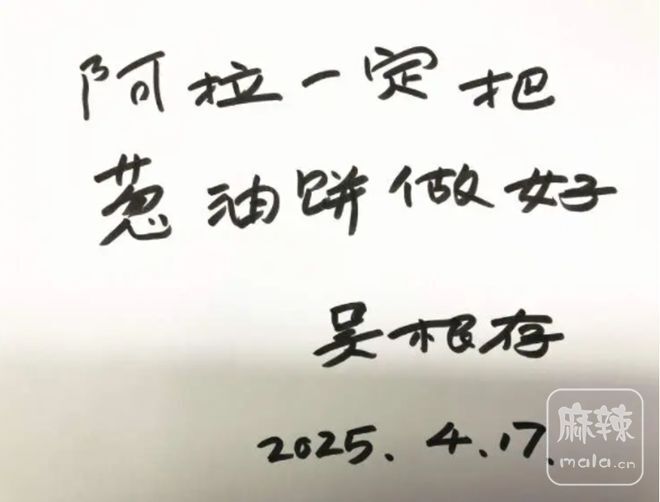 阿拉一定把
葱油饼做好
吴根存
2025.4.17.
麻辣
mala.cn